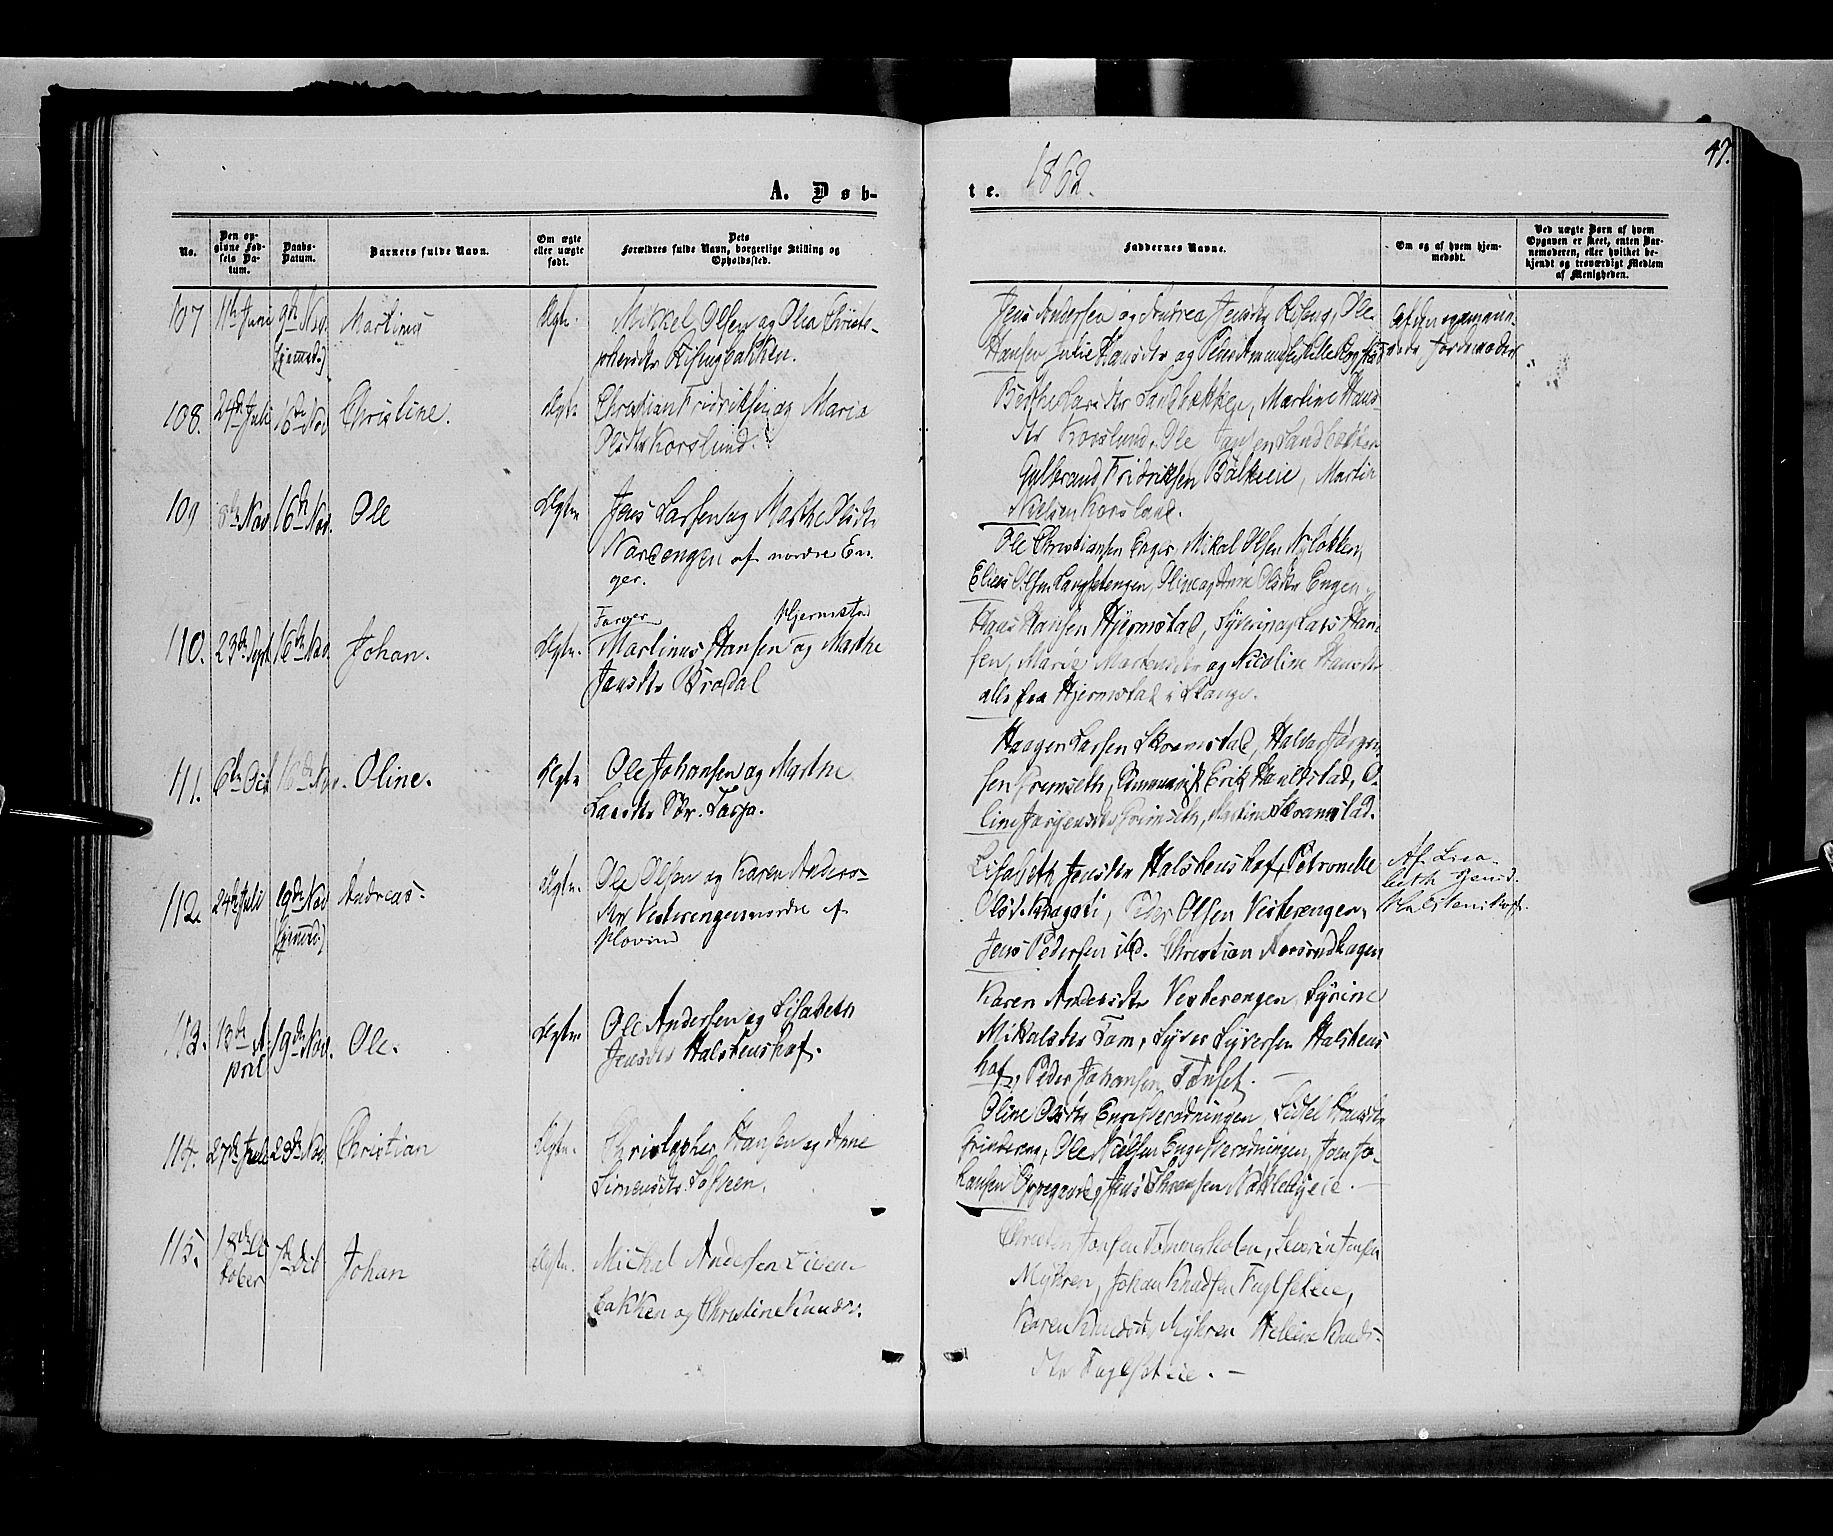 47.
A. Døb-
te. 1862.
No.
Den op-
givne Fød-
sels Da-
tum.
Daabs-
Datum.
Barnets fulde Navn.
Om ægte
eller uægte
født.
Dets
Forældres fulde Navn, borgerlige Stilling og
Opholdssted.
Faddernes Navne.
Om og af hvem hjem-
medøbt.
Ved uægte Børn af hvem
Opgaven er skeet, enten Bar-
nemoderen, eller hvilket be-
kjendt og troværdigt Medlem
af Menigheden.
107 11te Juni 9de Nov. Martinus Ægte. Mikkel Olsen og Olea Christo-
(hjemmed.) phersdtr
Jens Andersen og Andrea Jensdtr Ole
Hansen, Julie Hansdtr og
Jordemoder
108. 24de Juli 16de Nov Christine. Ægte Christian Fridriksen og Maria
Olsdtr Korslund.
Berthe Larsdtr Sandbækken, Martine Hans-
dtr Korslund, Ole Jansen Sandbækken
Gulbrand Fridriksen Bølkeeie, Martin
Nielsen Korslund.
109 8de Nov 16de Nov. Ole Ægte Jens Larsen og Marthe Olsdtr
Nordengen af nordre En-
ger.
Ole Christiansen Enger, Mikal Olsen Nyløkken,
Elias Olsen Langsetengen, Oline og Anne Olsdtr Engen
110. 23de Sept. 16de Nov Johan. Ægte. Farger Hjermstad
Martinus Hansen og Marthe
Jansdtr Brodal
Hans Hansen Hjermstad, Syverin og Lars Han-
sen, Marie Martinsdtr og Nicoline Hansdtr
alle fra Hjermstad i Stange.
111. 6te Oct 16de Nov. Oline. Ægte Ole Johansen og Marthe
Larsdtr Br. Torp.
Haagen Larsen Skramstad, Halvor Jørgen-
sen Grimseth, Erik Hauldstad, O-
line Jørgensdtr Grimseth, Martine Skramstad.
112. 24de Juli 19de Nov Andreas. Ægte. Ole Olsen og Karen Anders-
(hjemmed.) dtr Vesterengen nordre af
Hovind
Lisabeth Jensdtr Halstenshof, Petronelle
Olsd. Peder Olsen Vesterengen,
Jens Pedersen ibd. Christian
Af Lisa-
beth Jensd.
Halstenshof.
113. 13de A- 19de Nov. Ole. Ægte Ole Andersen og Lisabeth
pril Jensdtr Halstenshof.
Karen Andersdtr Vesterengen, Syrine
Mikalsdtr Tom, Syver Syversen Halstens
hof, Peder Johansen Tønset.
114. 27de Juli 23de Nov. Christian Ægte. Christopher Hansen og Anne
Simensdtr. Løfteen.
Oline Olsdtr Engesveødningen, Sidsel Hansdtr
Grindereng, Ole Nielsen Engesveødningen, Joen Jo-
hansen Opegaard og Jens Nokkebyeie.
115. 18de Oc 7de Dec Johan Ægte. Michel Andersen
tober bakken og Christine Knudsd.
Christen Jonsen Severin Jensen
Myhren, Johan Knudsen Fuglseteie,
Karen Knudsdtr Myhren Helline Knuds-
dtr Fuglseteie.